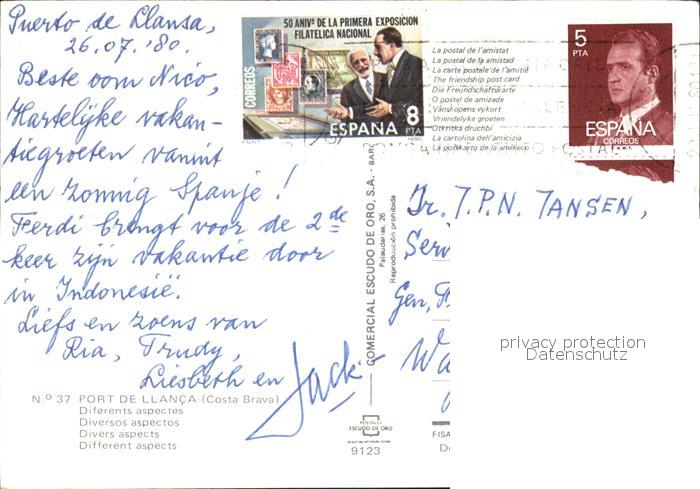 Puerto de Llansa,
26.07.'80.
Beste oom Nico,
Hartelijke vakan-
tiegroeten vanuit
een zonnig Spanje!
Ferdi brengt voor de 2de
keer zijn vakantie door
in Indonesië.
Liefs en zoens van
Ria, Trudy,
Liesbeth en Jack
N.º 37 PORT DE LLANÇA (Costa Brava)
Diferents aspectes
Diversos aspectos
Divers aspects
Different aspects
50 ANIVº DE LA PRIMERA EXPOSICION
FILATELICA NACIONAL
CORREOS
ESPAÑA 8
PTA
La postal de l'amistat
La postal de la amistad
La carte postale de l'amitié
The friendship post card
Die Freundschaftskarte
O postal de amizade
Vänskopens vykort
Vriendelyke groeten
Otkritka druchbi
La cartolina dell'amicizia
La postkarto de la amikeco
5
PTA
ESPAÑA
CORREOS
COMERCIAL ESCUDO DE ORO, S.A. - BAR
Palaudarias, 26
Reproducción prohibida
POSTALES
ESCUDO DE ORO
9123
Ir. J.P.N. JANSEN,
Serv
Gen.
Wa
FISA
D
privacy protection
Datenschutz